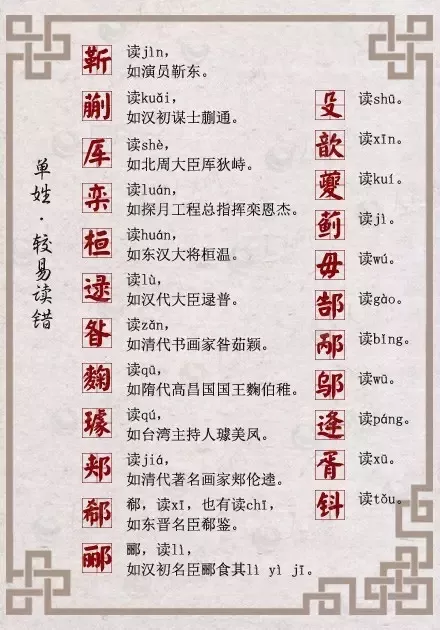 单姓·较易读错
靳 读jìn，
如演员靳东。
蒯 读kuǎi，
如汉初谋士蒯通。
厍 读shè，
如北周大臣厍狄峙。
栾 读luán，
如探月工程总指挥栾恩杰。
桓 读huán，
如东汉大将桓温。
逯 读lù，
如汉代大臣逯普。
昝 读zǎn，
如清代书画家昝茹颖。
麴 读qū，
如隋代高昌国国王麴伯稚。
璩 读qú，
如台湾主持人璩美凤。
郏 读jiá，
如清代著名画家郏伦逵。
郗 郗，读xī，也有读chī，
如东晋名臣郗鉴。
郦 郦，读lì，
如汉初名臣郦食其lì yì jī。
殳 读shū。
歆 读xīn。
夔 读kuí。
蓟 读jì。
毋 读wú。
郜 读gào。
邴 读bǐng。
邬 读wū。
逄 读páng。
胥 读xū。
钭 读tǒu。